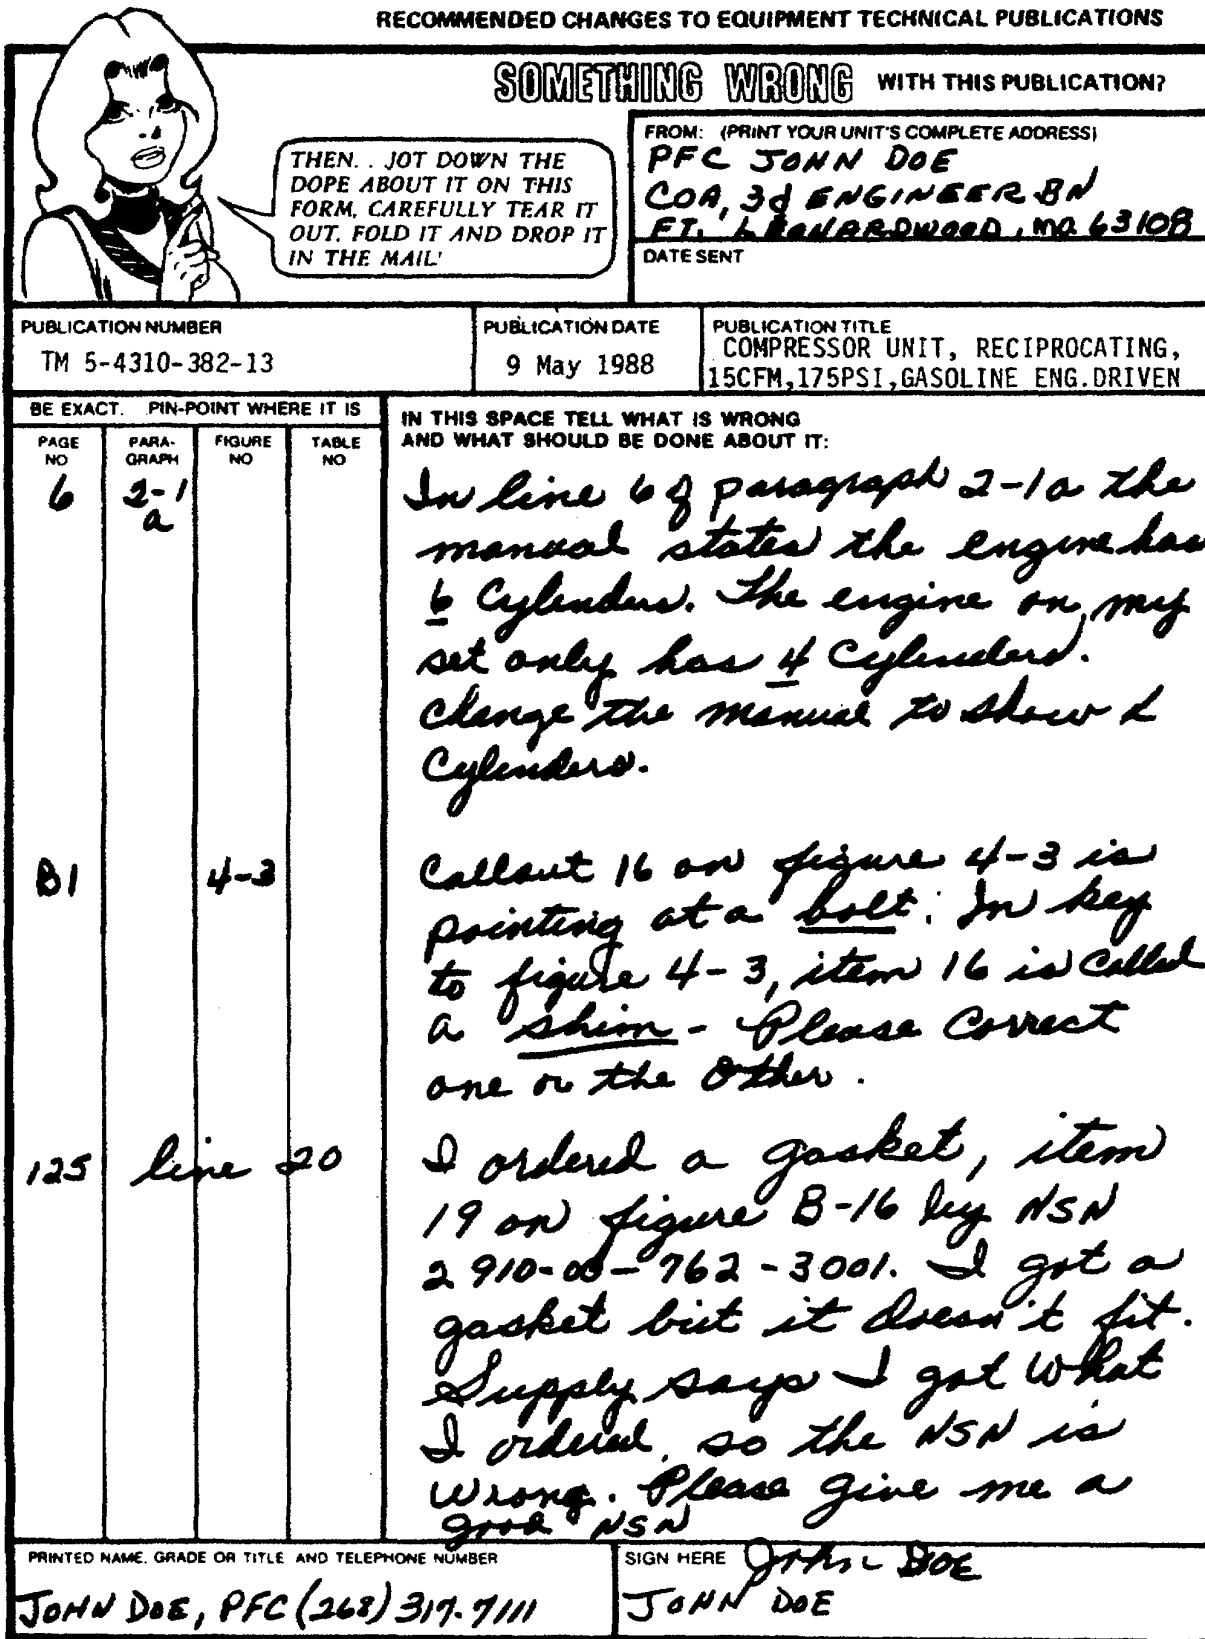 RECOMMENDED CHANGES TO EQUIPMENT TECHNICAL PUBLICATIONS
SOMETHING WRONG WITH THIS PUBLICATION?
THEN. . JOT DOWN THE
DOPE ABOUT IT ON THIS
FORM, CAREFULLY TEAR IT
OUT. FOLD IT AND DROP IT
IN THE MAIL'
FROM: (PRINT YOUR UNIT'S COMPLETE ADDRESS)
PFC JOHN DOE
COA, 3d ENGINEER BN
FT. LEONARDWOOD, MO 63108
DATE SENT
PUBLICATION NUMBER
TM 5-4310-382-13
PUBLICATION DATE
9 May 1988
PUBLICATION TITLE
COMPRESSOR UNIT, RECIPROCATING,
15CFM,175PSI,GASOLINE ENG.DRIVEN
BE EXACT. PIN-POINT WHERE IT IS
PAGE
NO
PARA-
GRAPH
FIGURE
NO
TABLE
NO
IN THIS SPACE TELL WHAT IS WRONG
AND WHAT SHOULD BE DONE ABOUT IT:
6 2-1
a
In line 6 of paragraph 2-1a the
manual states the engine has
6 Cylinders. The engine on my
set only has 4 Cylinders.
Change the manual to show
Cylinders.
B1 4-3
Callout 16 on figure 4-3 is
pointing at a bolt. In key
to figure 4-3, item 16 is called
a shim - Please Correct
one or the other.
125 line 20
I ordered a gasket, item
19 on figure B-16 by NSN
2910-00-762-3001. I got a
gasket but it doesn't fit.
Supply says I got what
I ordered, so the NSN is
wrong. Please give me a
good NSN
PRINTED NAME. GRADE OR TITLE AND TELEPHONE NUMBER
JOHN DOE, PFC (268) 317-7111
SIGN HERE John DOE
JOHN DOE